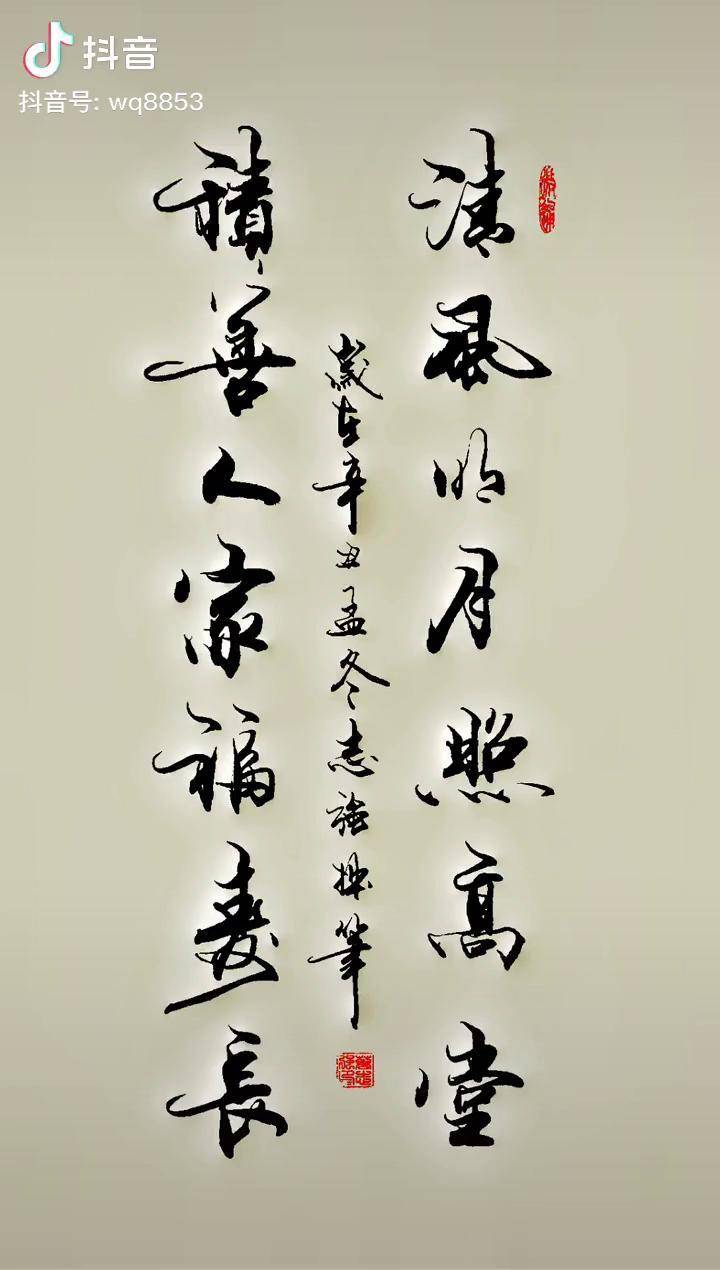 抖音
抖音号: wq8853
清風明月照高堂
積善人家福壽長
歲在辛丑孟冬志強揮筆